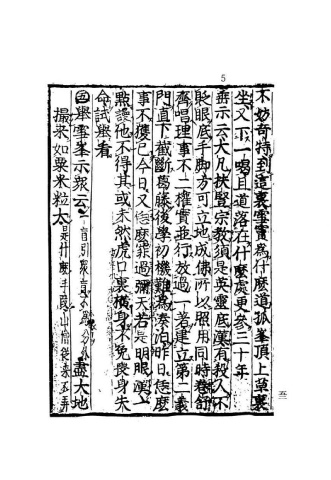 5
不妨奇特到這裏雪竇為什麼道孤峯頂上草裏
坐又下一喝且道落在什麼處更參三十年
垂示云大凡扶竪宗教須是英靈底漢有殺人不
眨眼底手脚方可立地成佛所以照用同時卷舒
齊唱理事不二權實並行放過一著建立第二義
門直下截斷葛藤後學初機難為湊泊昨日恁麼
事不獲已今日又恁麼罪過彌天若是明眼漢一
點謾他不得其或未然虎口裏橫身不免喪身失
命試舉看
五舉雪峯示衆云一盲引衆盲不為分外盡大地
撮來如粟米粒大是什麼手段山僧從來不弄
五